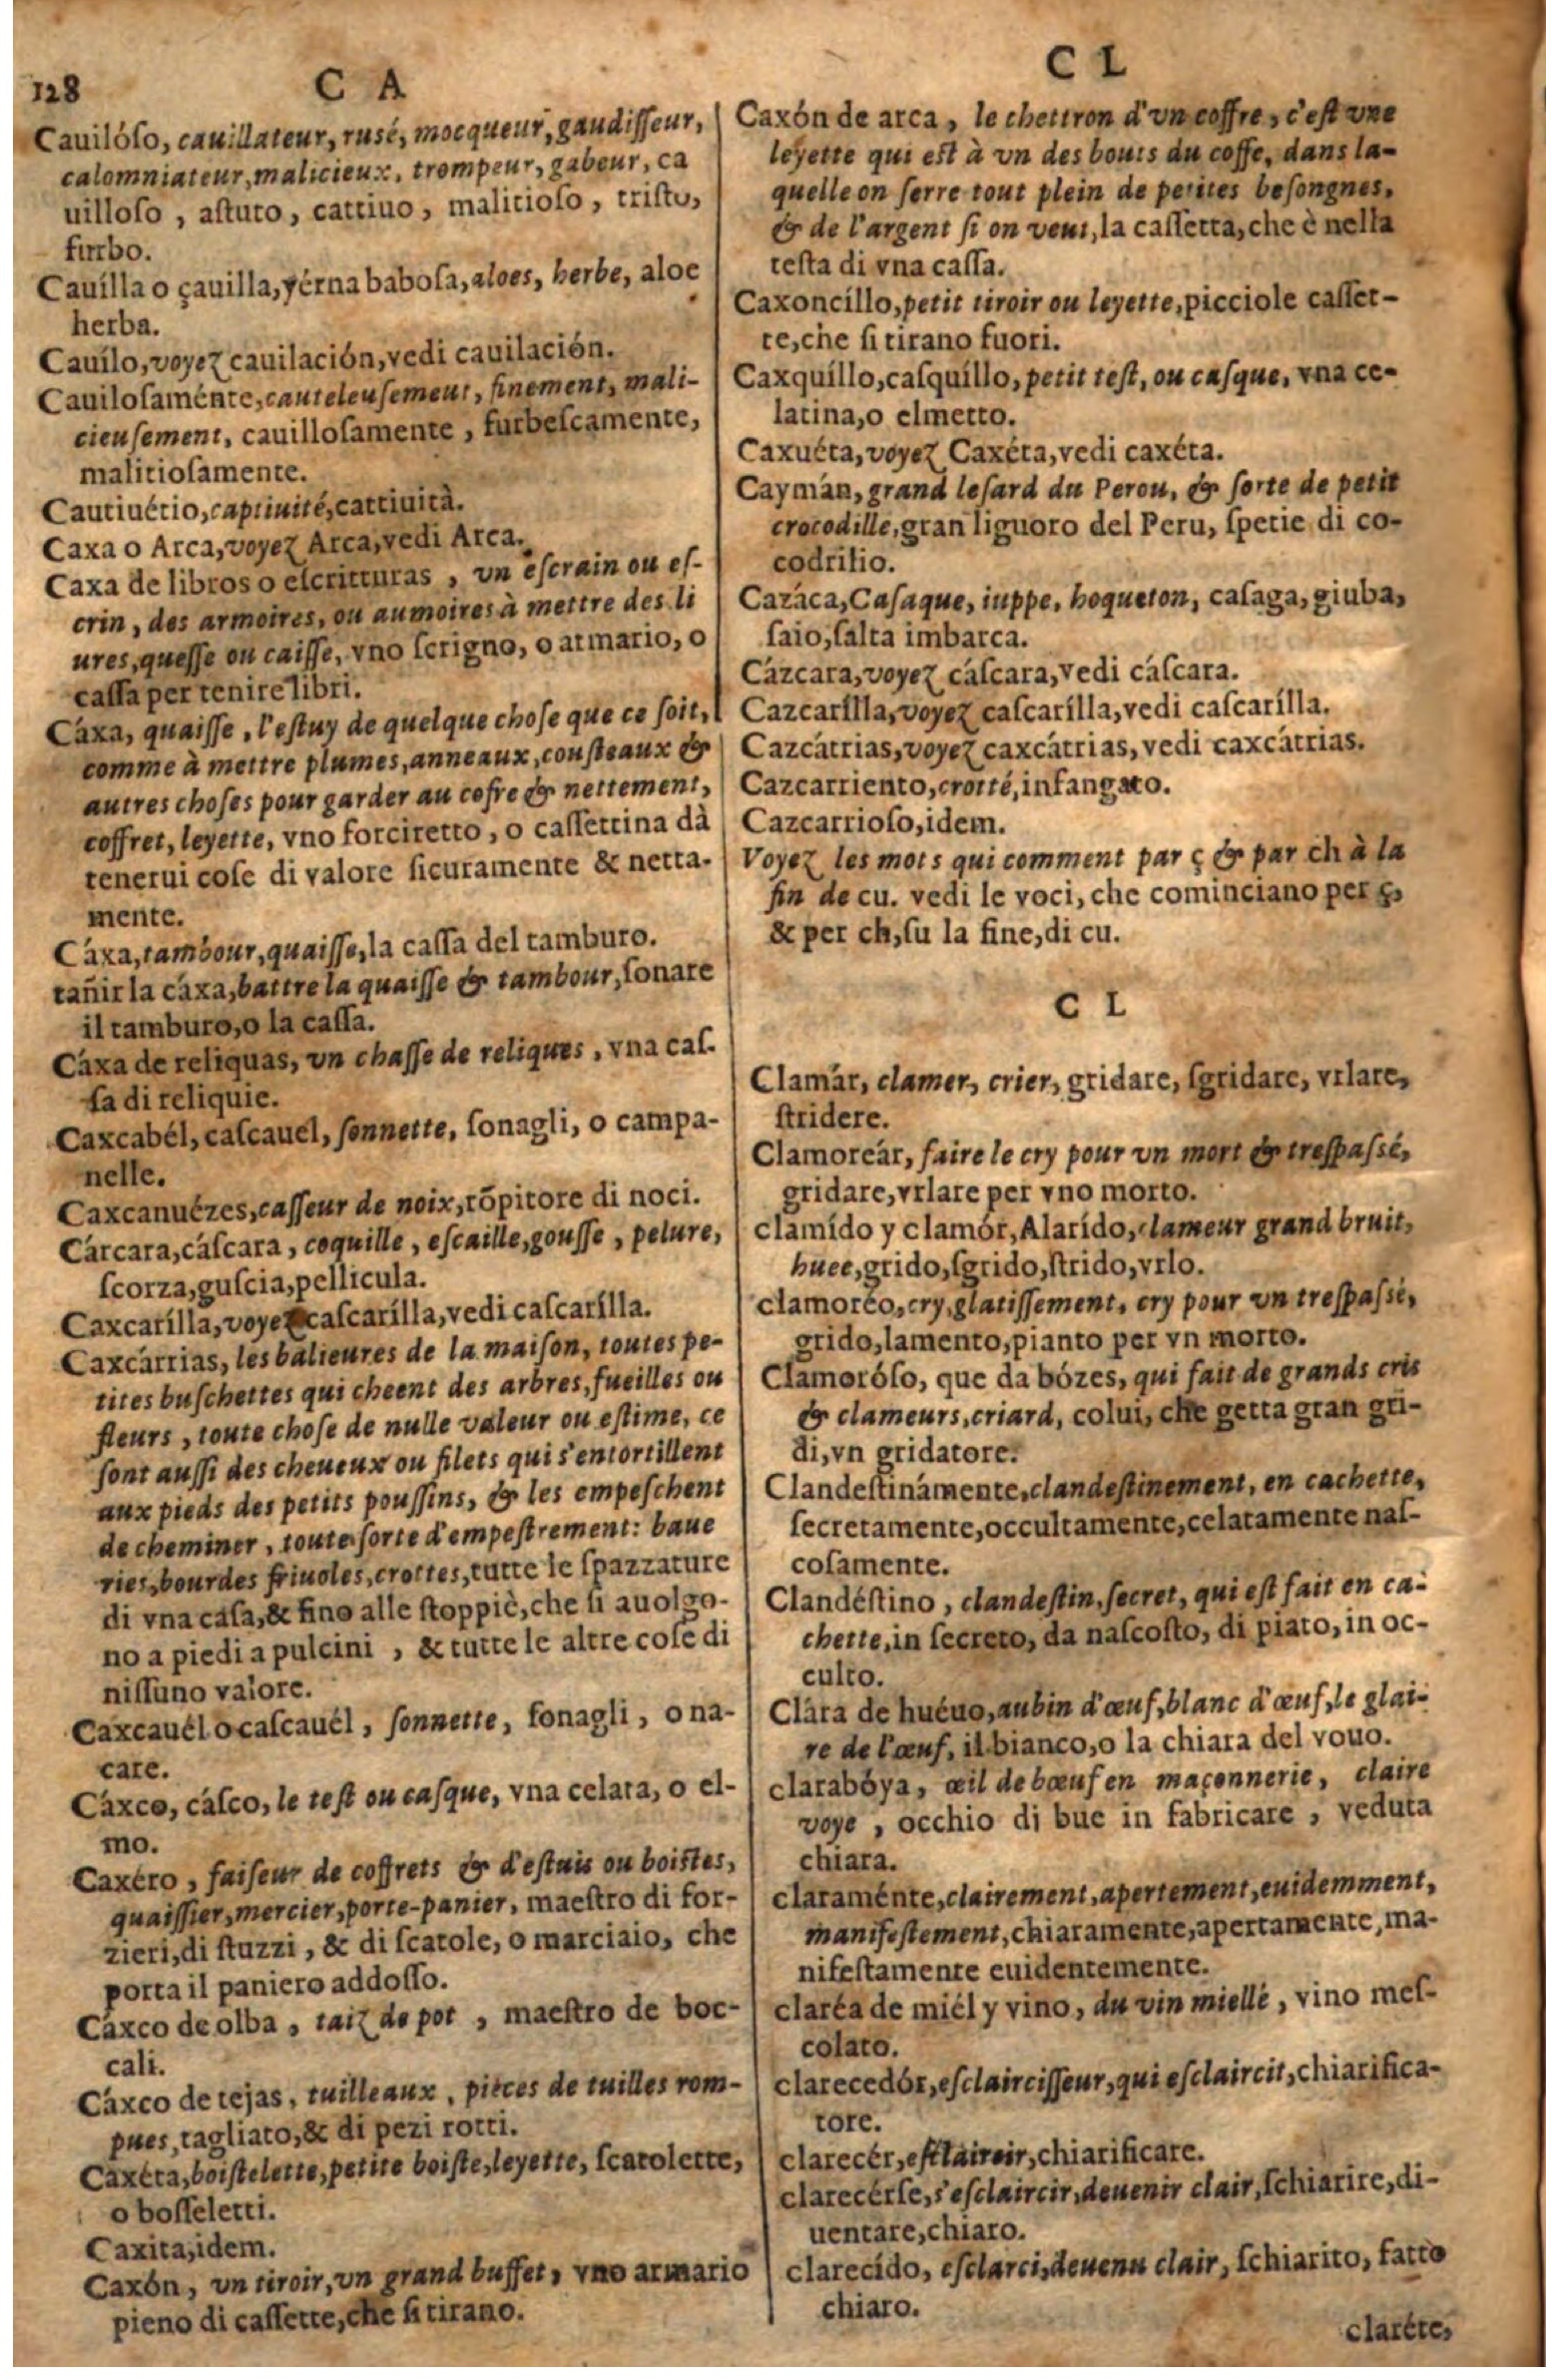 128
C A
Cauilóſo, cauillateur, ruſé, mocqueur, gaudiſſeur,
calomniateur, malicieux, trompeur, gabeur, ca
uilloſo, aſtuto, cattiuo, malitioſo, triſto,
furbo.
Cauílla o çauilla, yérna baboſa, aloes, herbe, aloe
herba.
Cauílo, voyez cauilación, vedi cauilación.
Cauiloſaménte, cauteleuſemeut, finement, mali-
cieuſement, cauilloſamente, furbeſcamente,
malitioſamente.
Cautiuério, captiuité, cattiuità.
Caxa o Arca, voyez Arca, vedi Arca.
Caxa de libros o eſcritturas, vn eſcrain ou eſ-
crin, des armoires, ou aumoires à mettre des li
ures, queſſe ou caiſſe, vno ſcrigno, o armario, o
caſſa per tenire libri.
Cáxa, quaiſſe, l'eſtuy de quelque choſe que ce ſoit,
comme à mettre plumes, anneaux, couſteaux &
autres choſes pour garder au cofre & nettement,
coffret, leyette, vno forciretto, o caſſettina dà
tenerui coſe di valore ſicuramente & netta-
mente.
Cáxa, tambour, quaiſſe, la caſſa del tamburo.
tañir la cáxa, battre la quaiſſe & tambour, ſonare
il tamburo, o la caſſa.
Cáxa de reliquas, vn chaſſe de reliques, vna caſ-
ſa di reliquie.
Caxcabél, caſcauel, ſonnette, ſonagli, o campa-
nelle.
Caxcanuézes, caſſeur de noix, rõpitore di noci.
Cárcara, cáſcara, coquille, eſcaille, gouſſe, pelure,
ſcorza, guſcia, pellicula.
Caxcarílla, voyez caſcarílla, vedi caſcarílla.
Caxcárrias, les balieures de la maiſon, toutes pe-
tites buſchettes qui cheent des arbres, fueilles ou
fleurs, toute choſe de nulle valeur ou eſtime, ce
ſont auſſi des cheueux ou filets qui s'entortillent
aux pieds des petits pouſſins, & les empeſchent
de cheminer, toute ſorte d'empeſtrement: baue
ries, bourdes friuoles, crottes, tutte le ſpazzature
di vna caſa, & fino alle ſtoppiè, che ſi auolgo-
no a piedi a pulcini, & tutte le altre coſe di
niſſuno valore.
Caxcauél o caſcauél, ſonnette, ſonagli, o na-
care.
Cáxco, cáſco, le teſt ou caſque, vna celata, o el-
mo.
Caxéro, faiſeur de coffrets & d'eſtuis ou boiſtes,
quaiſſier, mercier, porte-panier, maeſtro di for-
zieri, di ſtuzzi, & di ſcatole, o marciaio, che
porta il paniero addoſſo.
Cáxco de olba, taiz de pot, maeſtro de boc-
cali.
Cáxco de tejas, tuilleaux, pieces de tuilles rom-
pues, tagliato, & di pezi rotti.
Caxéta, boiſtelette, petite boiſte, leyette, ſcatolette,
o boſſeletti.
Caxita, idem.
Caxón, vn tiroir, vn grand buffet, vno armario
pieno di caſſette, che ſi tirano.
C L
Caxón de arca, le chettron d'vn coffre, c'eſt vne
leyette qui eſt à vn des bouts du coffe, dans la-
quelle on ſerre tout plein de petites beſongnes,
& de l'argent ſi on veut, la caſſetta, che è nella
teſta di vna caſſa.
Caxoncíllo, petit tiroir ou leyette, picciole caſſet-
te, che ſi tirano fuori.
Caxquíllo, caſquíllo, petit teſt, ou caſque, vna ce-
latina, o elmetto.
Caxuéta, voyez Caxéta, vedi caxéta.
Caymán, grand leſard du Perou, & ſorte de petit
crocodille, gran liguoro del Peru, ſpetie di co-
codrilio.
Cazáca, Caſaque, iuppe, hoqueton, caſaga, giuba,
ſaio, ſalta imbarca.
Cázcara, voyez cáſcara, vedi cáſcara.
Cazcarílla, voyez caſcarílla, vedi caſcarílla.
Cazcátrias, voyez caxcátrias, vedi caxcátrias.
Cazcarriento, crotté, infangato.
Cazcarrioſo, idem.
Voyez les mots qui comment par ç & par ch à la
fin de cu. vedi le voci, che cominciano per ç,
& per ch, ſu la fine, di cu.
C L
Clamár, clamer, crier, gridare, ſgridare, vrlare,
ſtridere.
Clamoreár, faire le cry pour vn mort & treſpaſſé,
gridare, vrlare per vno morto.
clamído y clamór, Alarído, clameur grand bruit,
huee, grido, ſgrido, ſtrido, vrlo.
clamoréo, cry, glatiſſement, cry pour vn treſpaſſé,
grido, lamento, pianto per vn morto.
Clamoróſo, que da bózes, qui fait de grands cris
& clameurs, criard, colui, che getta gran gri-
di, vn gridatore.
Clandeſtinámente, clandeſtinement, en cachette,
ſecretamente, occultamente, celatamente naſ-
coſamente.
Clandéſtino, clandeſtin, ſecret, qui eſt fait en ca-
chette, in ſecreto, da naſcoſto, di piato, in oc-
culto.
Clára de huéuo, aubin d'œuf, blanc d'œuf, le glai-
re de l'œuf, il bianco, o la chiara del vouo.
clarabóya, œil de bœuf en maçonnerie, claire
voye, occhio di bue in fabricare, veduta
chiara.
claraménte, clairement, apertement, euidemment,
manifeſtement, chiaramente, apertamente, ma-
nifeſtamente euidentemente.
claréa de miél y vino, du vin miellé, vino meſ-
colato.
clarecedór, eſclairciſſeur, qui eſclaircit, chiarifica-
tore.
clarecér, eſclaircir, chiarificare.
clarecérſe, s'eſclaircir, deuenir clair, ſchiarire, di-
uentare, chiaro.
clarecído, eſclarci, deuenu clair, ſchiarito, fatto
chiaro.
claréte,